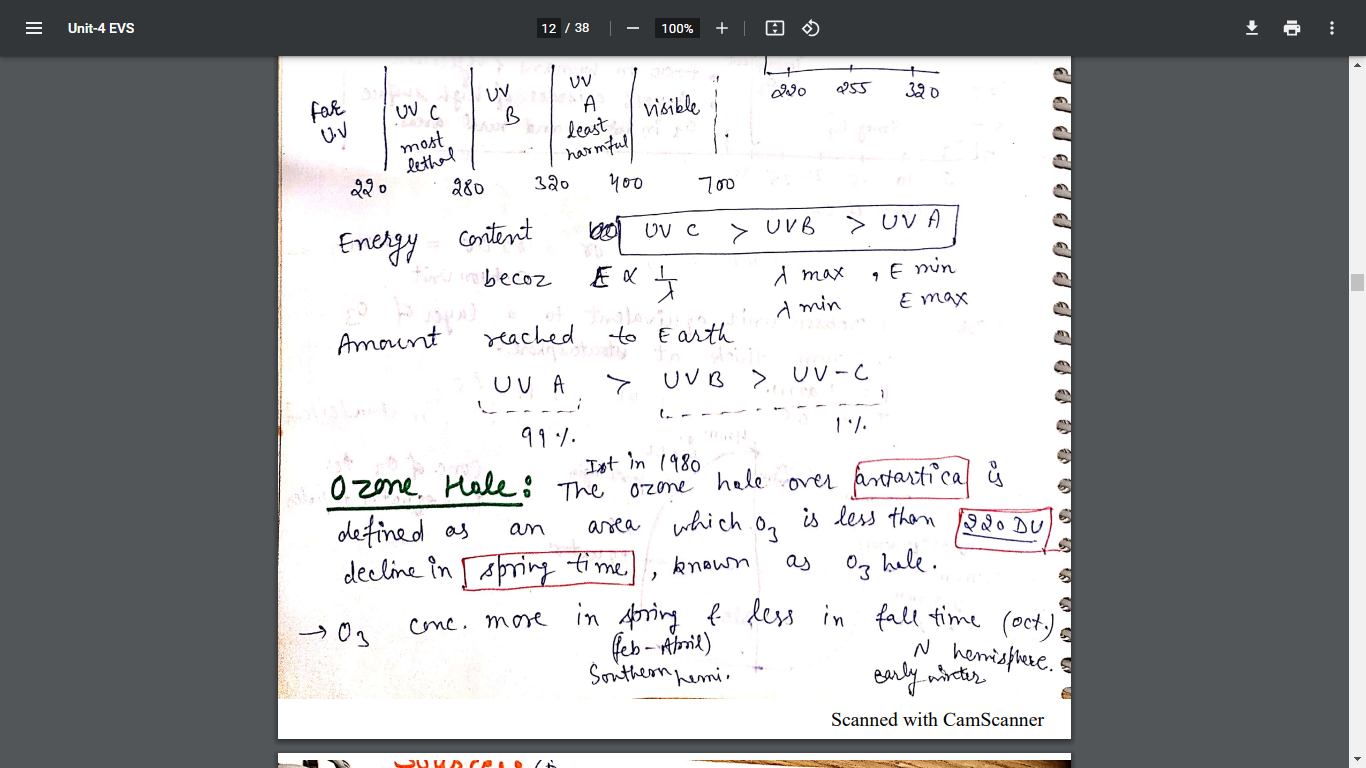 Unit-4 EVS
12 / 38
100%
220 255 320
Far UV C UV UV visible
U.V B A
most least
lethal harmful
220 280 320 400 700
Energy content UV C > UVB > UV A
becoz E ∝ 1/λ λ max , E min
λ min E max
Amount reached to Earth
UV A > UVB > UV-C
99%. 1%.
Ist in 1980
Ozone Hole: The ozone hole over antartica is
defined as an area which O3 is less than 220 DU
decline in spring time, known as O3 hole.
→ O3 conc. more in spring & less in fall time (oct.)
(feb-April) N hemisphere.
Southern hemi. early winter
Scanned with CamScanner